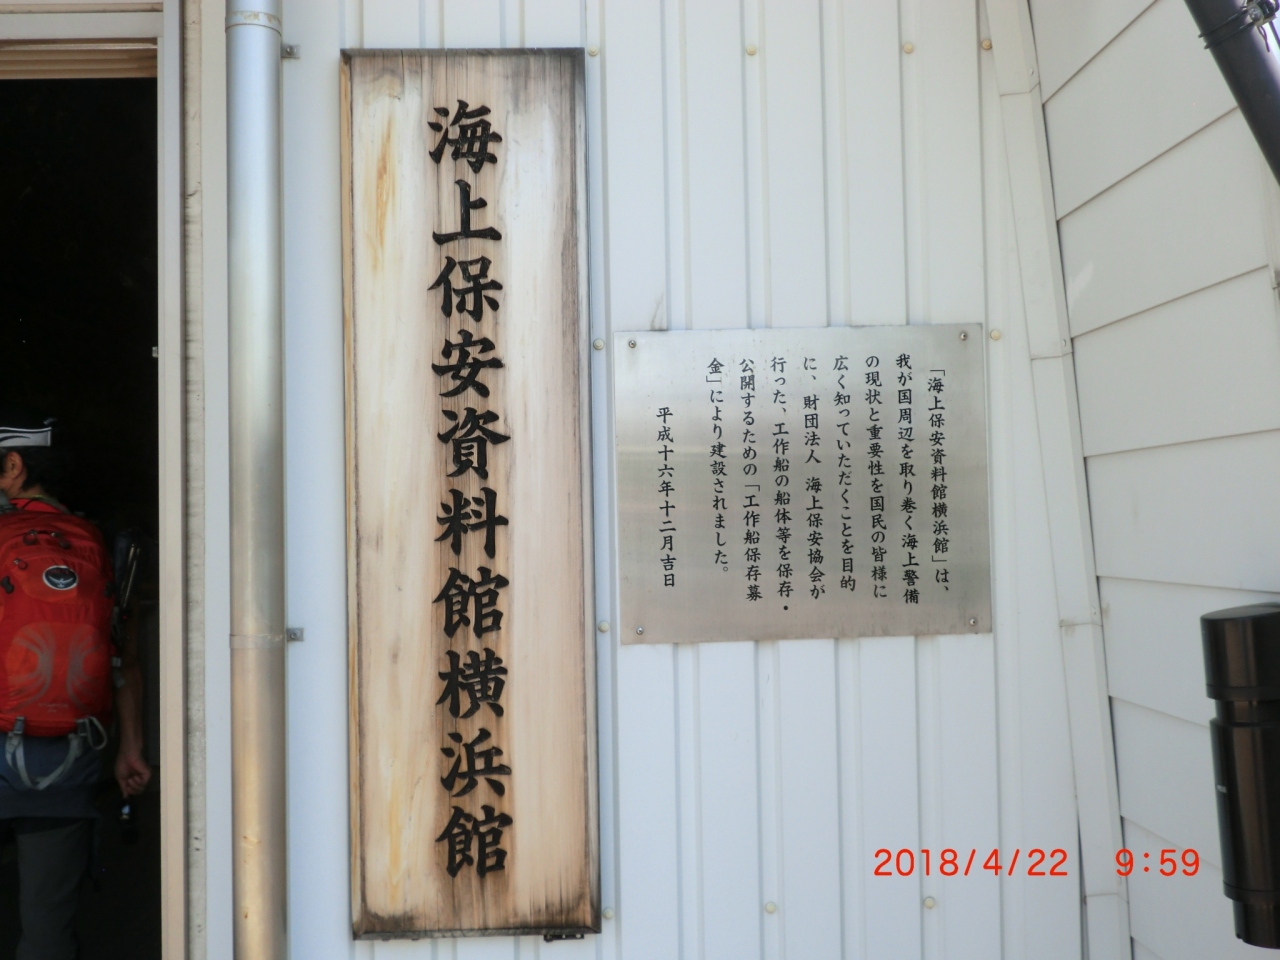 海上保安資料館横浜館
「海上保安資料館横浜館」は、
我が国周辺を取り巻く海上警備
の現状と重要性を国民の皆様に
広く知っていただくことを目的
に、財団法人 海上保安協会が
行った、工作船の船体等を保存・
公開するための「工作船保存募
金」により建設されました。
平成十六年十二月吉日
2018/4/22 9:59